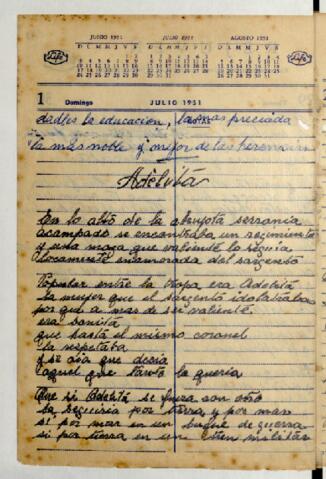 JUNIO 1951 JULIO 1951 AGOSTO 1951
Life Life
1 Domingo JULIO 1951
dadles la educacion, la mas preciada
la mas noble y mejor de las herencias
Adelita
En lo alto de la abrupta serrania
acampado se encontraba un regimiento
y una moza que valiente lo seguia
locamente enamorada del sargento
Popular entre la tropa era Adelita
la mujer que el sargento idolatraba
por que a mas de ser valiente
era bonita
que hasta el mismo coronel
la respetaba
y se oia que decia
aquel que tanto la queria
Que si Adelita se fuera con otro
la seguiria por tierra y por mar
si por mar en un buque de guerra
si por tierra en un tren militar